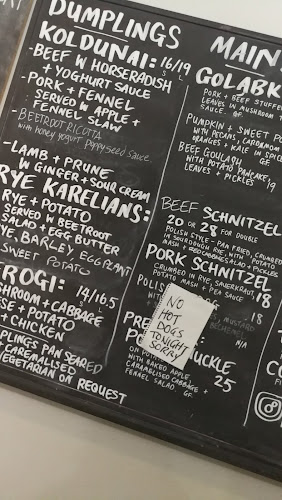 DUMPLINGS
KOLDUNAI: 16/19
S L
-BEEF W HORSERADISH
+ YOGHURT SAUCE
-PORK + FENNEL
SERVED W APPLE +
FENNEL SLAW
-BEETROOT RICOTTA
with honey yogurt poppyseed sauce
-LAMB + PRUNE
W GINGER + SOUR CREAM
RYE KARELIANS:
RYE + POTATO
SERVED W BEETROOT
SALAD + EGG BUTTER
RYE, BARLEY, EGGPLANT
SWEET POTATO
ROGI: 14/16.5
S L
SHROOM + CABBAGE
SE + POTATO
+ CHICKEN
PLINGS PAN SEARED
CAREMALISED
VEGETARIAN ON REQUEST
MAIN
GOLABK
PORK + BEEF STUFFE
LEAVES W MUSHROOM T
SAUCE. GF
PUMPKIN + SWEET PO
WITH PECANS, CARDAMOM
ORANGES + KALE IN SPICE
GF
BEEF GOULASH
WITH POTATO PANCAKE,
LEAVES + PICKLES 19
BEEF SCHNITZEL
20 OR 28 FOR DOUBLE
POLISH STYLE - PAN FRIED, CRUMBED
IN SOURDOUGH RYE, WITH POTATO
MASH + PICKLES
PORK SCHNITZEL
CRUMBED IN RYE, SAUERKRAUT,
MASH + PEA SAUCE 18
POLIS
WITH
MUSTARD 18
N/A
NO
HOT
DOGS
TONIGHT
SORRY
PRE
UCKLE
ON POTATO
WITH BAKED APPLE 25
CARAMELISED CABBAGE +
FENNEL SALAD. GF
CO
FI